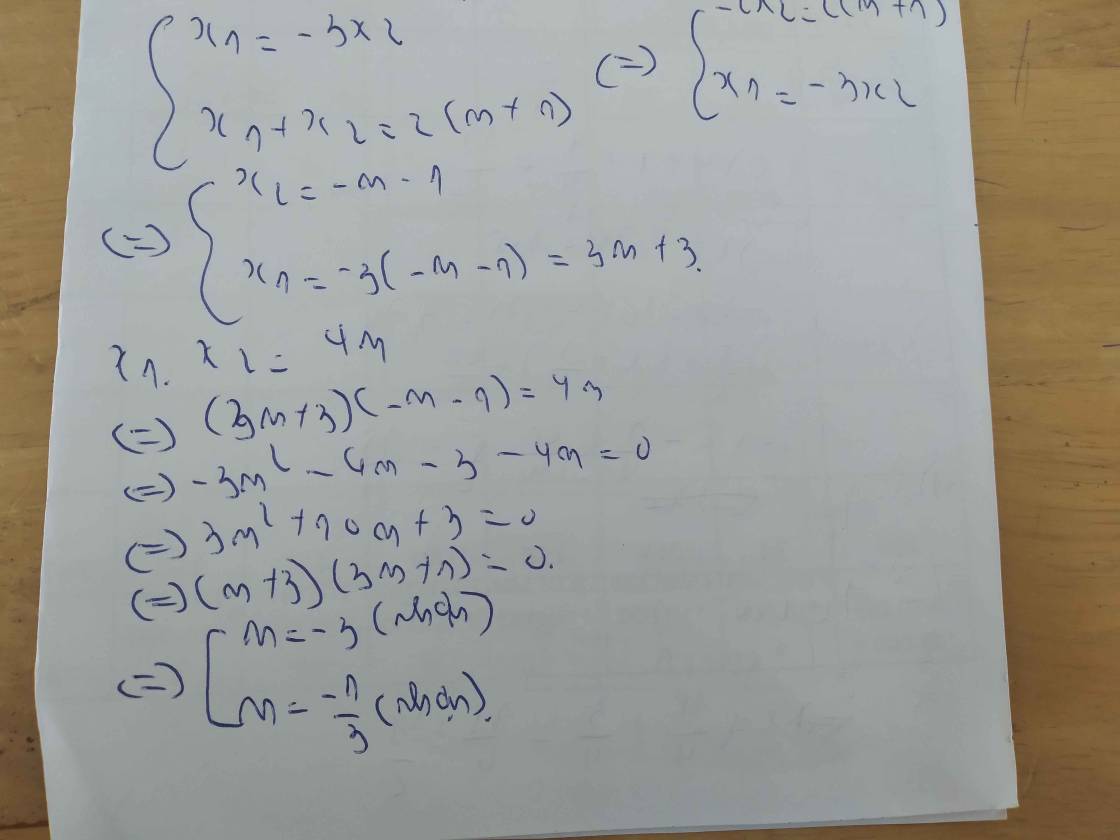 x1 = -3x2
x1 + x2 = 2(m + 1)
(=) -2x2 = 2(m + 1)
x1 = -3x2
(=) x2 = -m - 1
x1 = -3(-m - 1) = 3m + 3.
x1. x2 = 4m
(=) (3m + 3)(-m - 1) = 4m
(=) -3m² - 6m - 3 - 4m = 0
(=) 3m² + 10m + 3 = 0
(=) (m + 3)(3m + 1) = 0.
(=) m = -3 (nhận)
m = -1/3 (nhận).